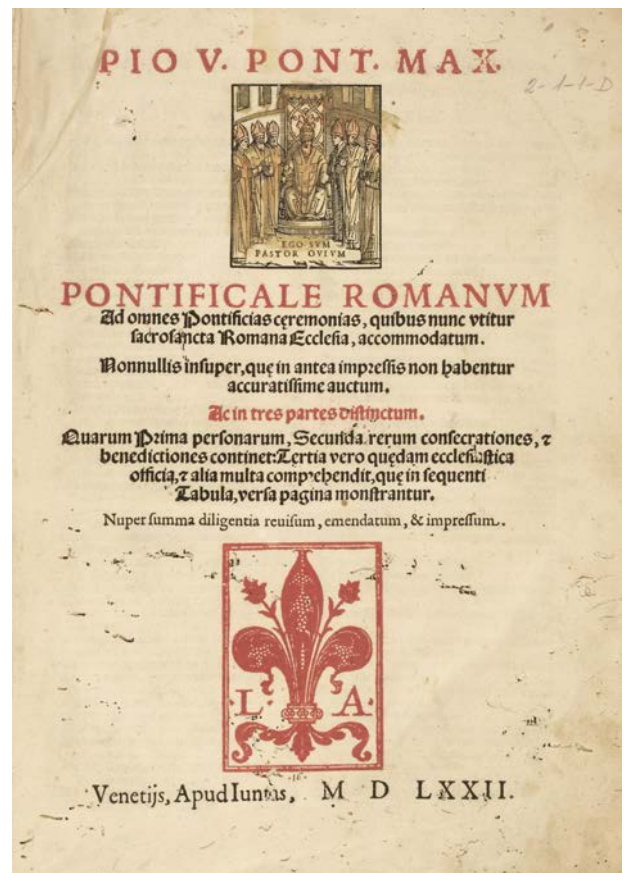 PIO V. PONT. MAX.
2-1-1-D
EGO SVM
PASTOR OVIVM
PONTIFICALE ROMANVM
Ad omnes Pontificias cęremonias, quibus nunc vtitur
sacrosancta Romana Ecclesia, accommodatum.
Nonnullis insuper, quę in antea impressis non habentur
accuratissime auctum.
Ac in tres partes distinctum.
Quarum Prima personarum, Secunda rerum consecrationes, ⁊
benedictiones continet: Tertia vero quędam ecclesiastica
officia, ⁊ alia multa comprehendit, quę in sequenti
Tabula, versa pagina monstrantur.
Nuper summa diligentia reuisum, emendatum, & impressum.
L. A.
Venetijs, Apud Iuntas, M D LXXII.